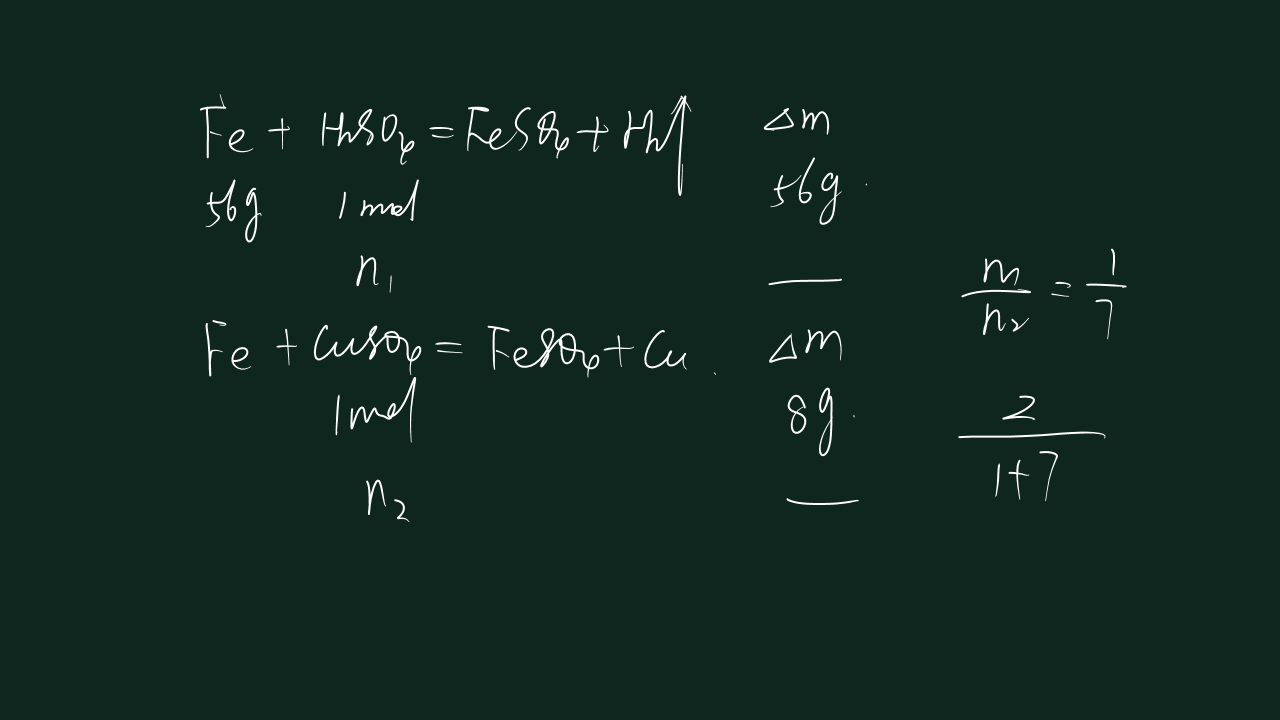 Fe + H₂SO₄ = FeSO₄ + H₂↑ △m
56g 1mol 56g
n₁
n₁/n₂ = 1/7
Fe + CuSO₄ = FeSO₄ + Cu △m
1mol 8g
2/(1+7)
n₂